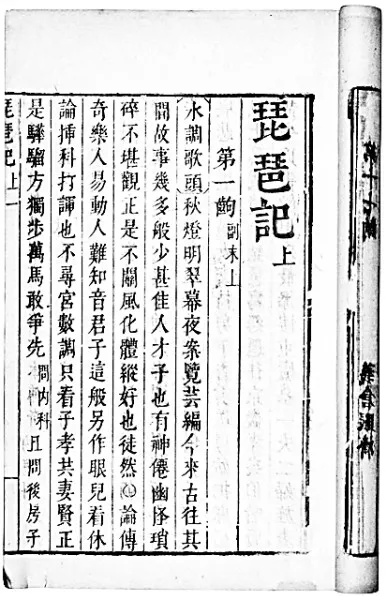 琵琶記上
第一齣 副末上
水調歌頭秋燈明翠幕夜案覽芸編今來古往其
間故事幾多般少甚佳人才子也有神僊幽怪瑣
碎不堪觀正是不關風化體縱好也徒然論傳
奇樂人易動人難知音君子這般另作眼兒看休
論插科打諢也不尋宮數調只看子孝共妻賢正
是驊騮方獨步萬馬敢爭先 問內科 且問後房子
琵琶記上 一